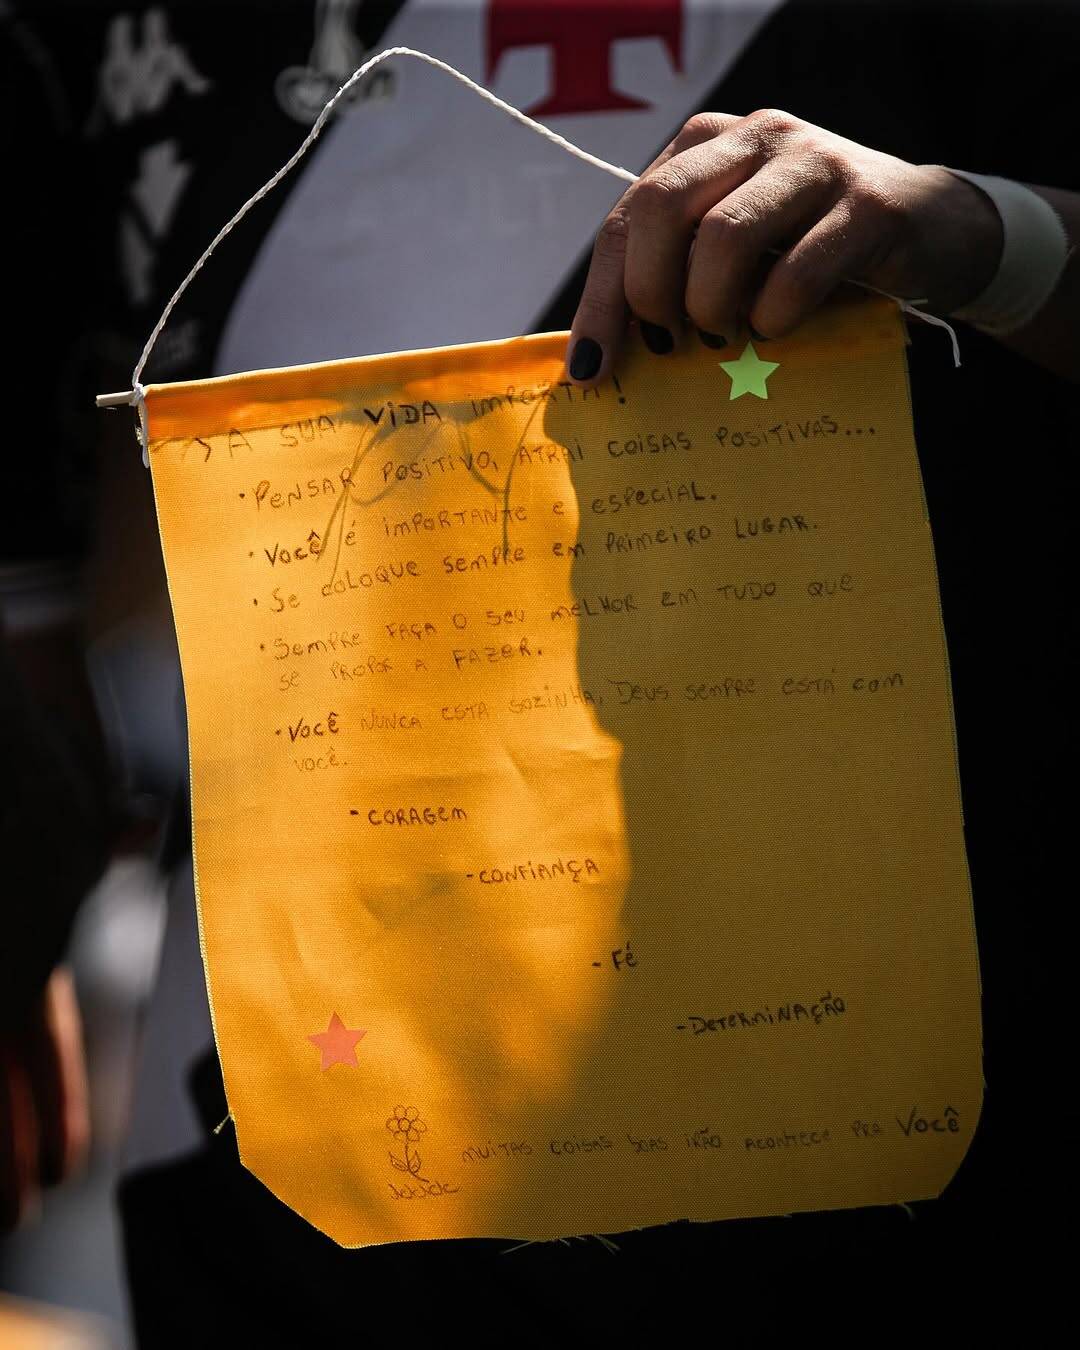 > A SUA VIDA IMPORTA!
• PENSAR POSITIVO, ATRAI COISAS POSITIVAS...
• VOCÊ é IMPORTANTE e ESPECIAL.
• Se COLOQUE SEMPRE Em PRIMEIRO LUGAR.
• SEMPRE FAÇA O SEU MELHOR EM TUDO QUE
SE PROPOR A FAZER.
• VOCÊ NUNCA ESTÁ SOZINHA, DEUS SEMPRE ESTÁ COM
VOCÊ.
- CORAGEM
- CONFIANÇA
- FÉ
- DETERMINAÇÃO
MUITAS COISAS BOAS IRÃO ACONTECE PRA VOCÊ